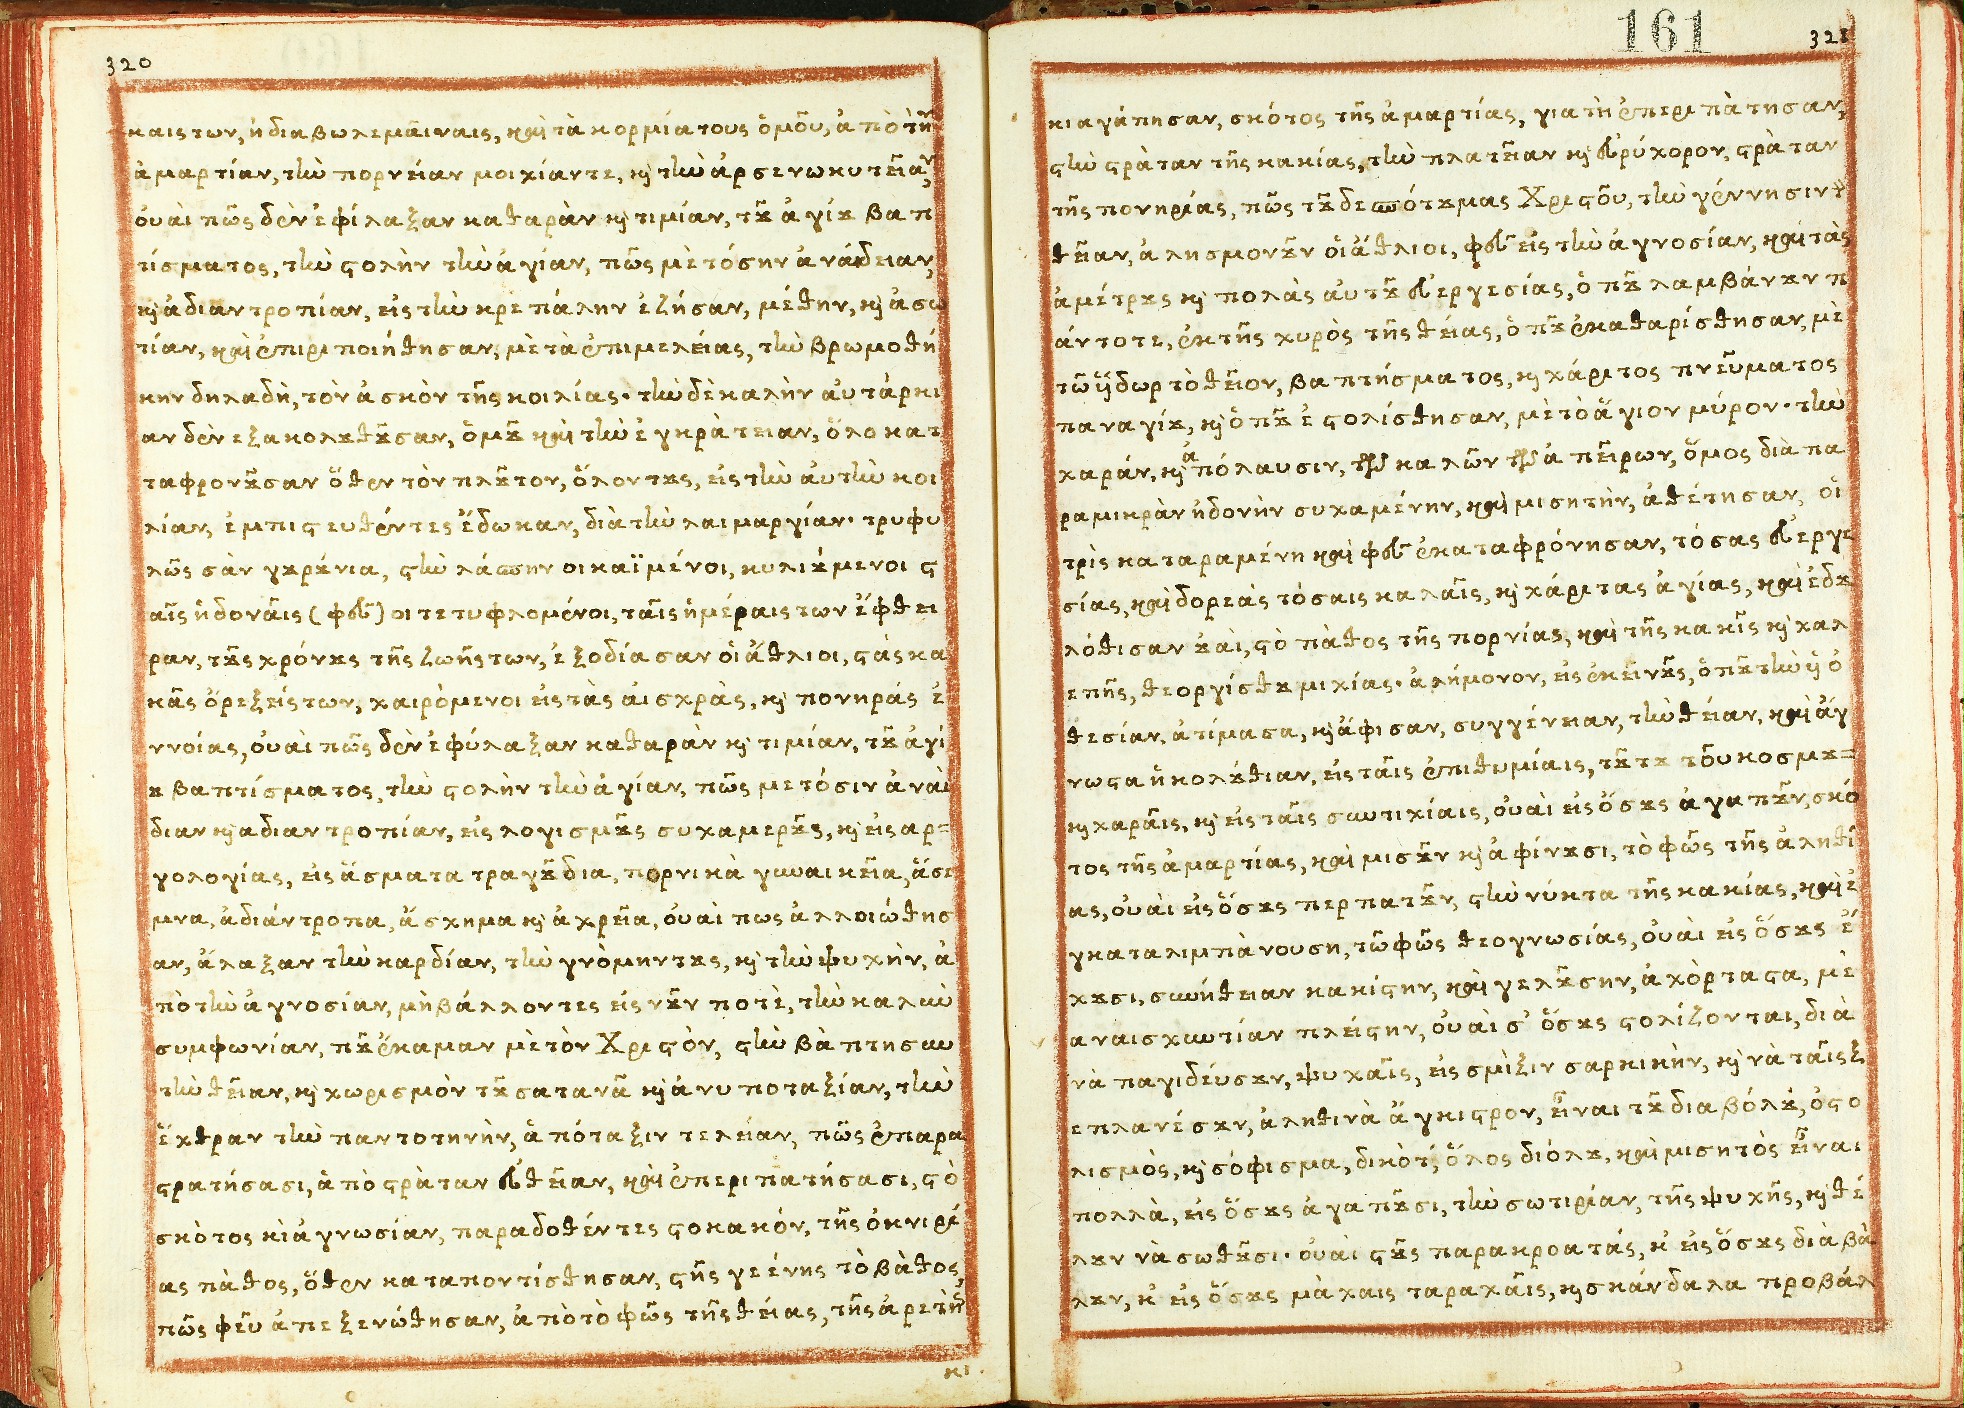 320
καιςτων, ἡ διαβωλεμᾶιναις, καὶ τὰ κορμίατους ὁμοῦ, ἀπὸ τὴν
ἁμαρτίαν, τὴν πορνείαν μοιχίαντε, κὶ τὴν ἀρσενωκυτεῖαν,
ὀυαὶ πῶς δὲν ἐφίλαξαν καθαρὰν κὶ τιμίαν, τοῦ ἁγίου βαπ
τίσματος, τὴν στολὴν τὴν ἁγίαν, πῶς μὲ τόσην ἀνάδειαν,
κὶ ἀδιαντροπίαν, εἰς τὴν κρεπάλην ἐζήσαν, μέθην, κὶ ἀσω
τίαν, καὶ ἐπεριποιήθησαν, μὲ τὰ ἐπιμελείάς, τὴν βρωμοθή
κην δηλαδὴ, τὸν ἀσκὸν τῆς κοιλίας· τὴν δὲ καλὴν αὐτάρκι
αν δὲν εξακολουθοῦσαν, ὁμοῦ καὶ τὴν ἐγκρὰτειαν, ὅλο κατ
ταφρονοῦσαν ὅθεν τὸν πλοῦτον, ὅλοντους, εἰς τὴν αὐτὴν κοι
λίαν, ἐμπιστευθέντες ἔδωκαν, διὰ τὴν λαιμαργίαν· τρυφυ
λῶς σὰν γουρούνια, στὴν λάσπην οι καϊμένοι, κυλιούμενοι στ
αῖς ἡδονᾶις (φεῦ) οι τετυφλομένοι, ταῖς ἡμέραις των ἔφθει
ραν, τοῦς χρόνους τῆς ζωῆς των, ἐξοδίασαν οἱ ἄθλιοι, στὰς κα
κᾶς ὄρεξείς των, χαιρὸμενοι εἰς τὰς ἀισχρὰς, κὶ πονηράς ἐ
ννοίας, ὀυαὶ πῶς δὲν ἐφύλαξαν καθαρὰν κὶ τιμίαν, τοῦ ἁγί
ου βαπτίσματος, τὴν στολὴν τὴν ἁγίαν, πῶς με τόσιν ἀναὶ
διαν κὶ αδιαντροπίαν, εἰς λογισμοῦς συχαμεροῦς, κὶ εἰς αρ=
γολογίας, εἰς ἄσματα τραγοῦδια, πορνικὰ γυναικεῖα, ἄσε
μνα, ἀδιάντροπα, ἄσχημα κὶ ἀχρεῖα, ὀυαὶ πως ἀλλοιώθησ
αν, ἄλαξαν τὴν καρδίαν, τὴν γνὸμηντους, κὶ τὴν ψυχὴν, ἀ
πὸ τὴν ἀγνοσίαν, μὴ βάλλοντες εἰς νοῦν ποτὲ, τὴν καλὴν
συμφωνίαν, ποῦ ἔκαμαν μὲ τὸν Χριστὸν, στὴν βὰπτησιν
τὴν θεῖαν, κὶ χωρισμὸν τοῦ σατανᾶ κὶ ἀνυποταξίαν, τὴν
ἔχθραν τὴν παντοτηνὴν, ἀπόταξιν τελείαν, πῶς ἐπαρα
στρατήσασι, ἀπὸ στρὰταν εὐθεῖαν, καὶ ἐπεριπατήσασι, στὸ
σκότος κὶ ἀγνωσίαν, παραδοθέντες στο κακόν, τῆς ὀκνιρί
ας πὰθος, ὅθεν καταποντίσθησαν, στῆς γεένης τὸ βὰθος,
πῶς φεῦ ἀπεξενώθησαν, ἀπὸ τὸ φῶς τῆς θείας, τῆς ἀρετῆς
κι
161
321
κι αγάπησαν, σκότος τῆς ἁμαρτίας, γιατὴ ἐπεριπὰτησαν,
στὴν στρὰταν τῆς κακίας, τὴν πλατεῖαν κὶ εὐρύχορον, στρὰταν
τῆς πονηρίας, πῶς τοῦ δεσπότουμας Χριστοῦ, τὴν γέννησιν τ
θεῖαν, ἀλησμονοῦν οἱ ἄθλιοι, φεῦ εἰς τὴν ἀγνοσίαν, καὶ τὰς
ἀμέτρους κὶ πολὰς ἀυτοῦ εὐεργεσίας, ὁποῦ λαμβάνουν π
άντοτε, ἐκ τῆς χυρὸς τῆς θείας, ὁποῦ ἐκαθαρίσθησαν, μὲ
τῶ ὕδωρ τὸ θεῖον, βαπτήσματος, κὶ χάριτος πνεῦματος
παναγίου, κὶ ὁποῦ ἐστολίσθησαν, μὲ τὸ ἅγιον μύρον· τὴν
χαράν, κὶ ἀπόλαυσιν, τῶν καλῶν τῶν ἀπεῖρων, ὅμος διὰ πα
ραμικρὰν ἡδονὴν συχαμένην, καὶ μισητὴν, ἀθέτησαν, οἱ
τρὶς καταραμένη καὶ φεῦ ἐκαταφρόνησαν, τόσας εὐεργε
σίας, καὶ δορεὰς τόσαις καλαῖς, κὶ χάριτας ἁγίας, καὶ ἐδου
λόθισαν οὐαὶ, στὸ πὰθος τῆς πορνίας, καὶ τῆς κακῖς κὶ χαλ
επῆς, θεοργίσθου μιχίας· ἀλήμονον, εἰς ἐκεῖνοῦς, ὁποῦ τὴν ὑὁ
θεσίαν, ἀτίμασα, κὶ ἄφισαν, συγγένειαν, τὴν θείαν, καὶ ἄγ
νωστα ἠκολοῦθιαν, εἰς ταῖς ἐπιθυμίαις, τοῦ του τοῦ κοσμου=
κὶ χαραῖς, κὶ εἰς ταῖς σωτιχίαις, ὀυαὶ εἰς ὅσους ἀγαποῦν, σκό
τος τῆς ἁμαρτίας, καὶ μισοῦν κὶ ἀφίνουσι, τὸ φῶς τῆς ἀληθί
ας, ὀυαὶ εἰς ὅσους περπατοῦν, στὴν νύκτα τῆς κακίας, καὶ ἐ
γκαταλιμπὰνουση, τῶ φῶς θεογνωσίας, ὀυαὶ εἰς ὅσους ἔ
χουσι, συνήθειαν κακίστην, καὶ γελοῦσην, ἀχόρταστα, μὲ
αναισχυντίαν πλείστην, ὀυαὶ σ' ὅσους στολίζονται, διὰ
νὰ παγιδέυσουν, ψυχαῖς, εἰς σμίξιν σαρκικὴν, κὶ νὰ ταῖς ξ
επλανέσουν, ἀληθινὰ ἄγκιστρον, εἶναι τοῦ διαβόλου, ὁ στο
λισμὸς, κὶ σόφισμα, δικότ', ὅλος διόλου, καὶ μισητὸς εἶναι
πολλὰ, εἰς ὅσους ἀγαποῦσι, τὴν σωτιρίαν, τῆς ψυχῆς, κὶ θέ
λουν νὰ σωθοῦσι· ὀυαὶ στοῦς παρακροατάς, κ' εἰς ὅσους διαβὰ
λουν, κ' εἰς ὅσους μὰχαις ταραχᾶις, κὶ σκάνδαλα προβάλ